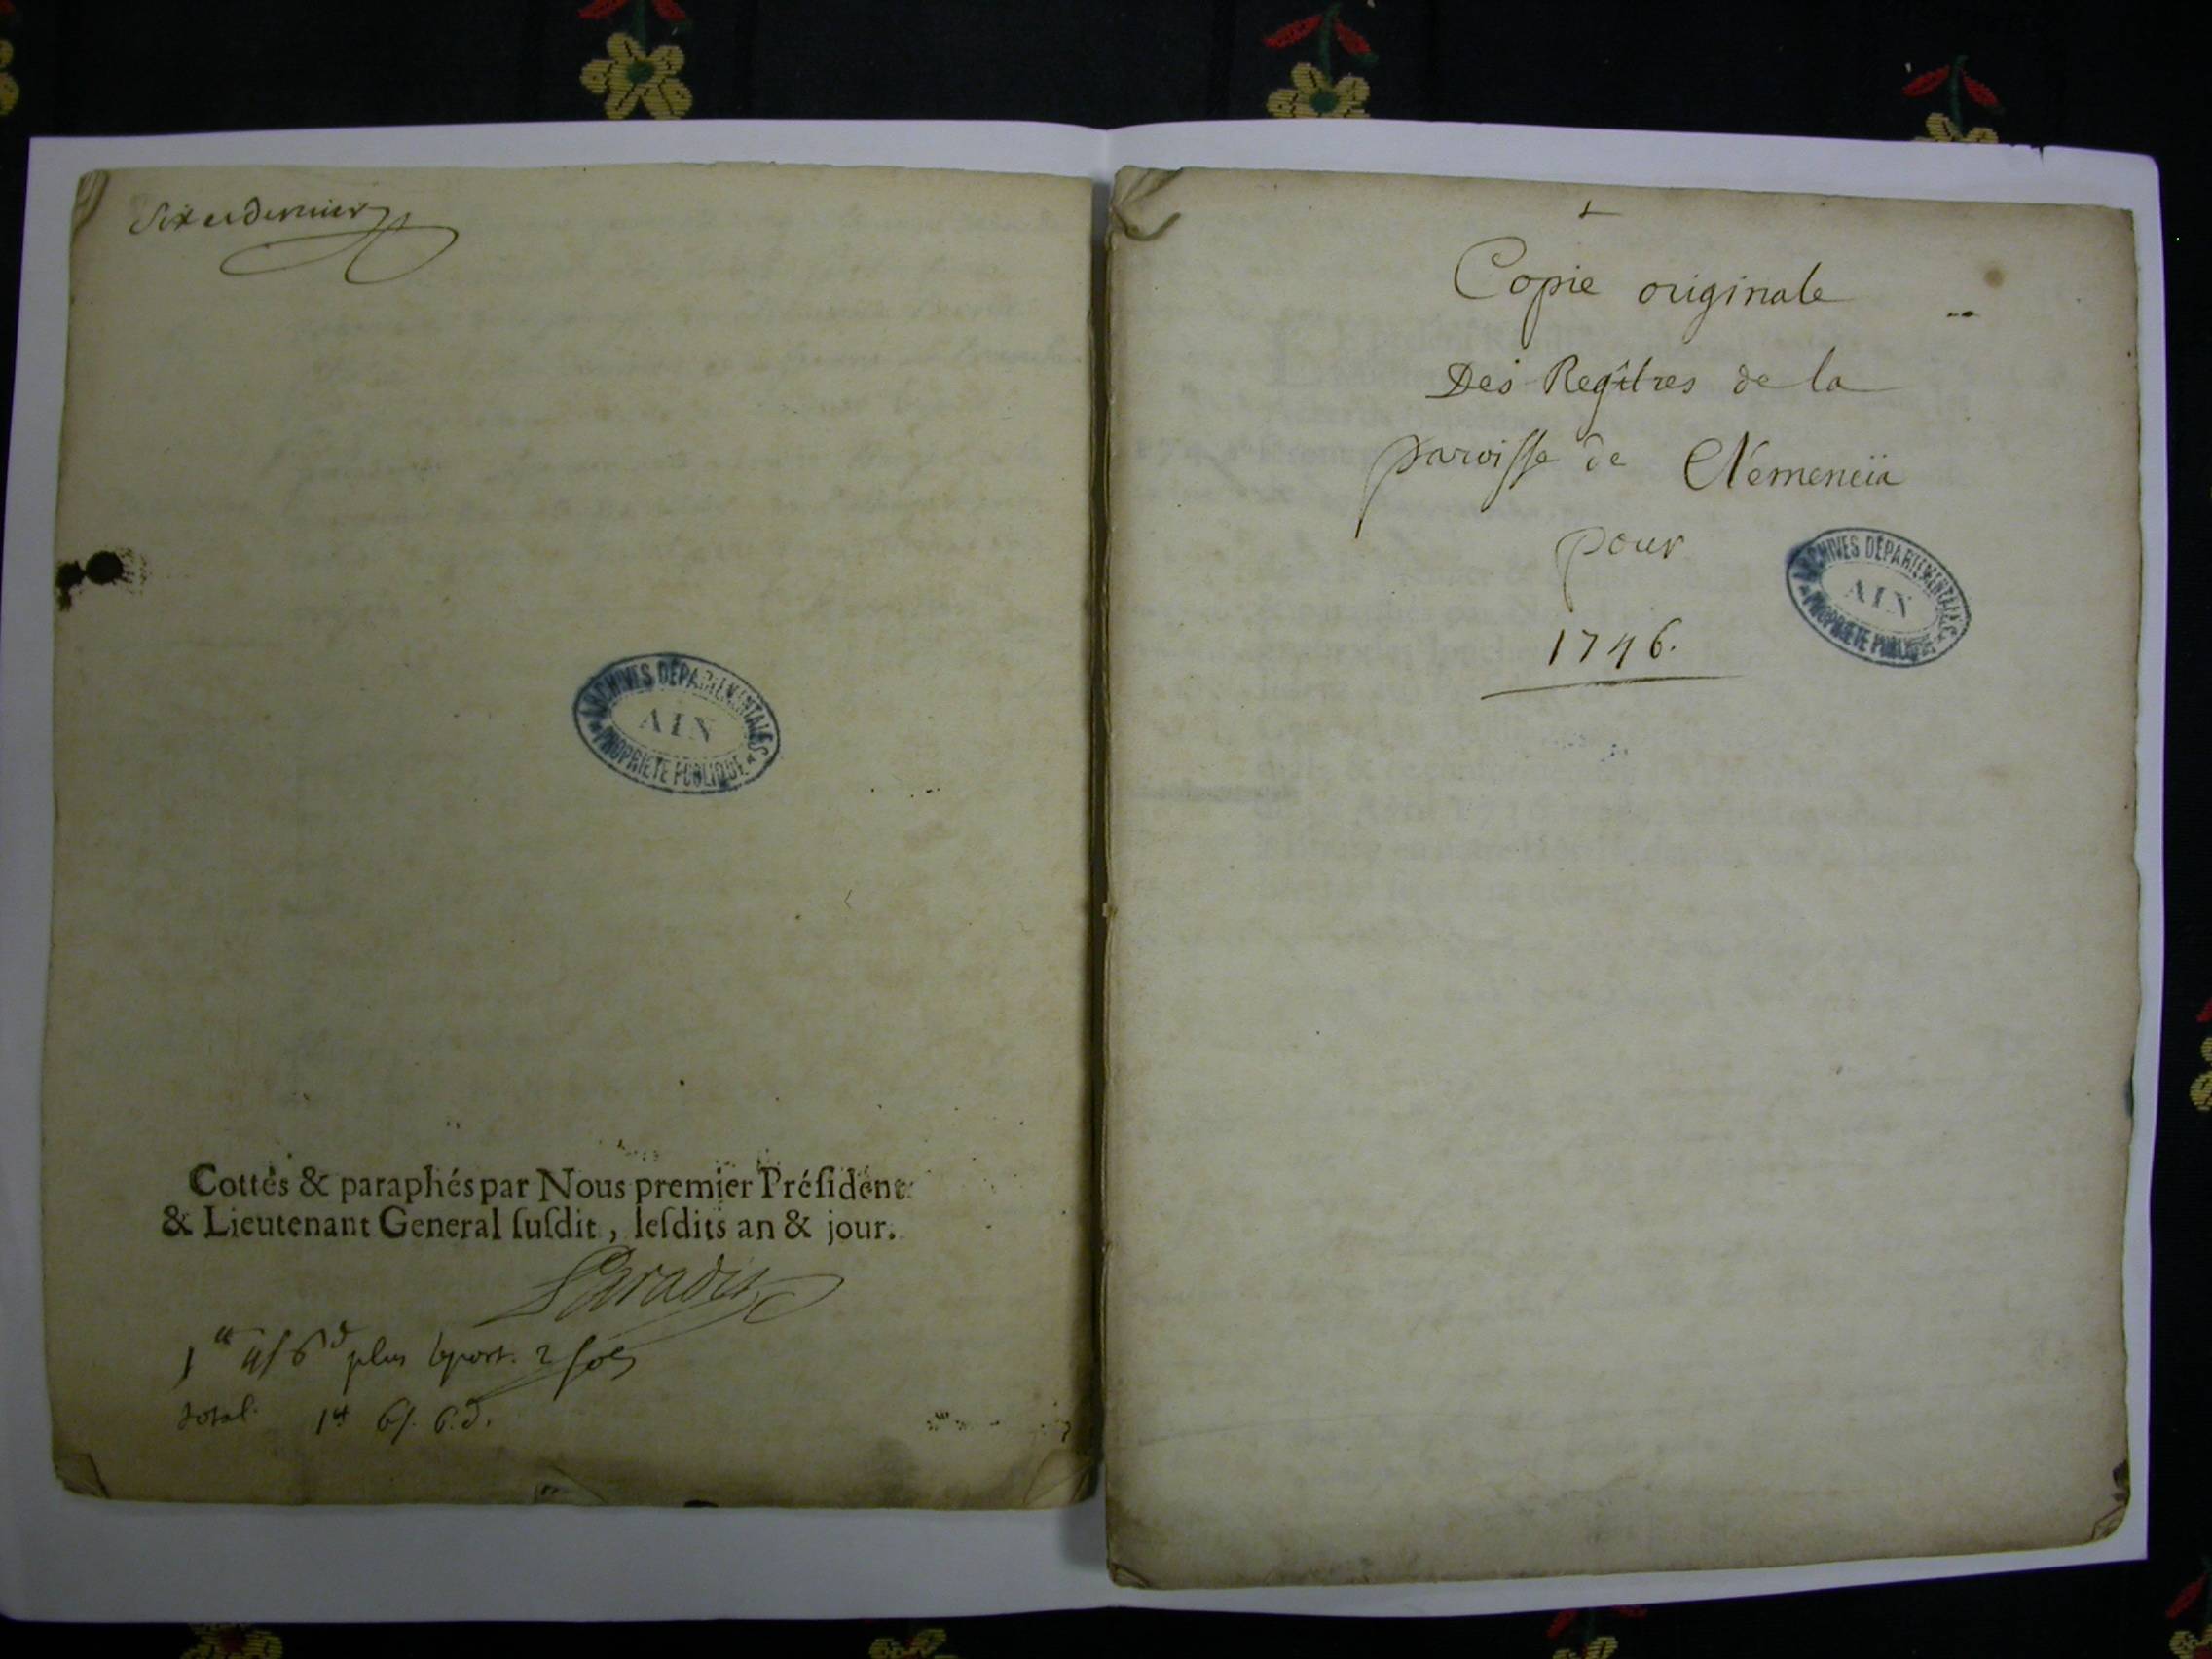 Six et dernier
ARCHIVES DÉPARTEMENTALES
AIN
PROPRIÉTÉ PUBLIQUE
Cottés & paraphés par Nous premier Préſident
& Lieutenant General ſuſdit, leſdits an & jour.
Paradis
1tt 4s 6d plus 2 sols
total 1tt 6s. 6.d.
Copie originale
Des Regîtres de la
paroisse de Némencïa
pour
1746.
ARCHIVES DÉPARTEMENTALES
AIN
PROPRIÉTÉ PUBLIQUE